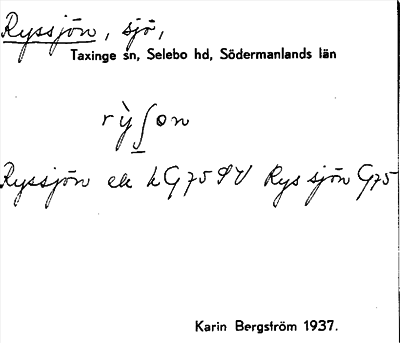 Ryssjön, sjö,
Taxinge sn, Selebo hd, Södermanlands län
rỳʃon
Ryssjön ek h G75 SV Rys sjön G75
Karin Bergström 1937.